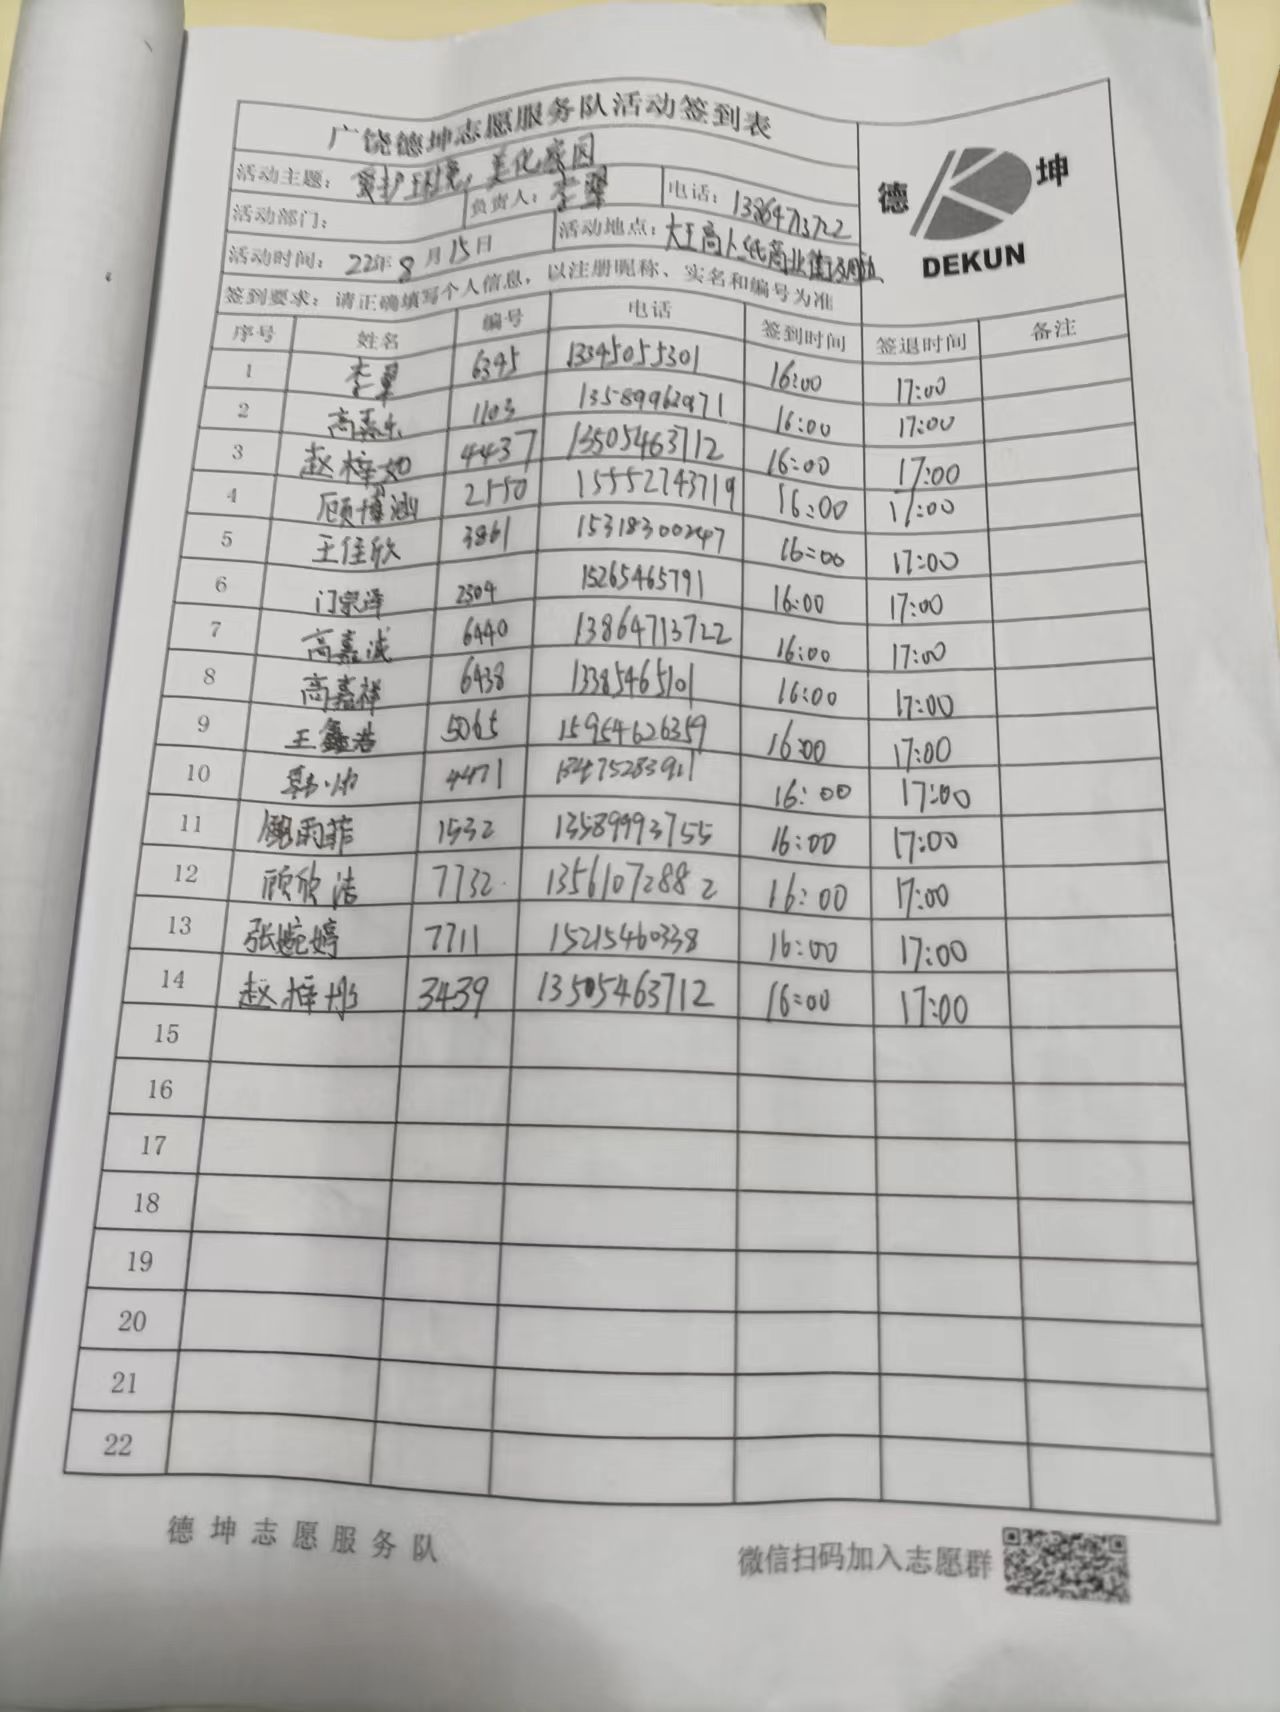 广饶德坤志愿服务队活动签到表
活动主题： 爱护环境，美化家园
活动部门： 负责人：李翠 电话：13864713722
活动时间： 22年8月15日 活动地点：大王高人纸商业街
签到要求：请正确填写个人信息，以注册昵称、实名和编号为准
德 坤
DEKUN
序号 姓名 编号 电话 签到时间 签退时间 备注
1 李翠 6395 13345055301 16:00 17:00
2 高嘉乐 1103 13589962971 16:00 17:00
3 赵梓如 4437 13505463712 16:00 17:00
4 顾博涵 2550 15552743719 16:00 17:00
5 王佳欣 3861 15318300247 16:00 17:00
6 门宗泽 2504 15265465791 16:00 17:00
7 高嘉诚 6440 13864713722 16:00 17:00
8 高嘉祥 6438 13385465101 16:00 17:00
9 王鑫浩 5065 15954626359 16:00 17:00
10 韩帅 4471 13475283911 16:00 17:00
11 雨菲 1532 13589993755 16:00 17:00
12 顾欣洁 7732 13561072882 16:00 17:00
13 张婉婷 7711 15215460338 16:00 17:00
14 赵梓彤 3439 13505463712 16:00 17:00
15
16
17
18
19
20
21
22
德坤志愿服务队 微信扫码加入志愿群